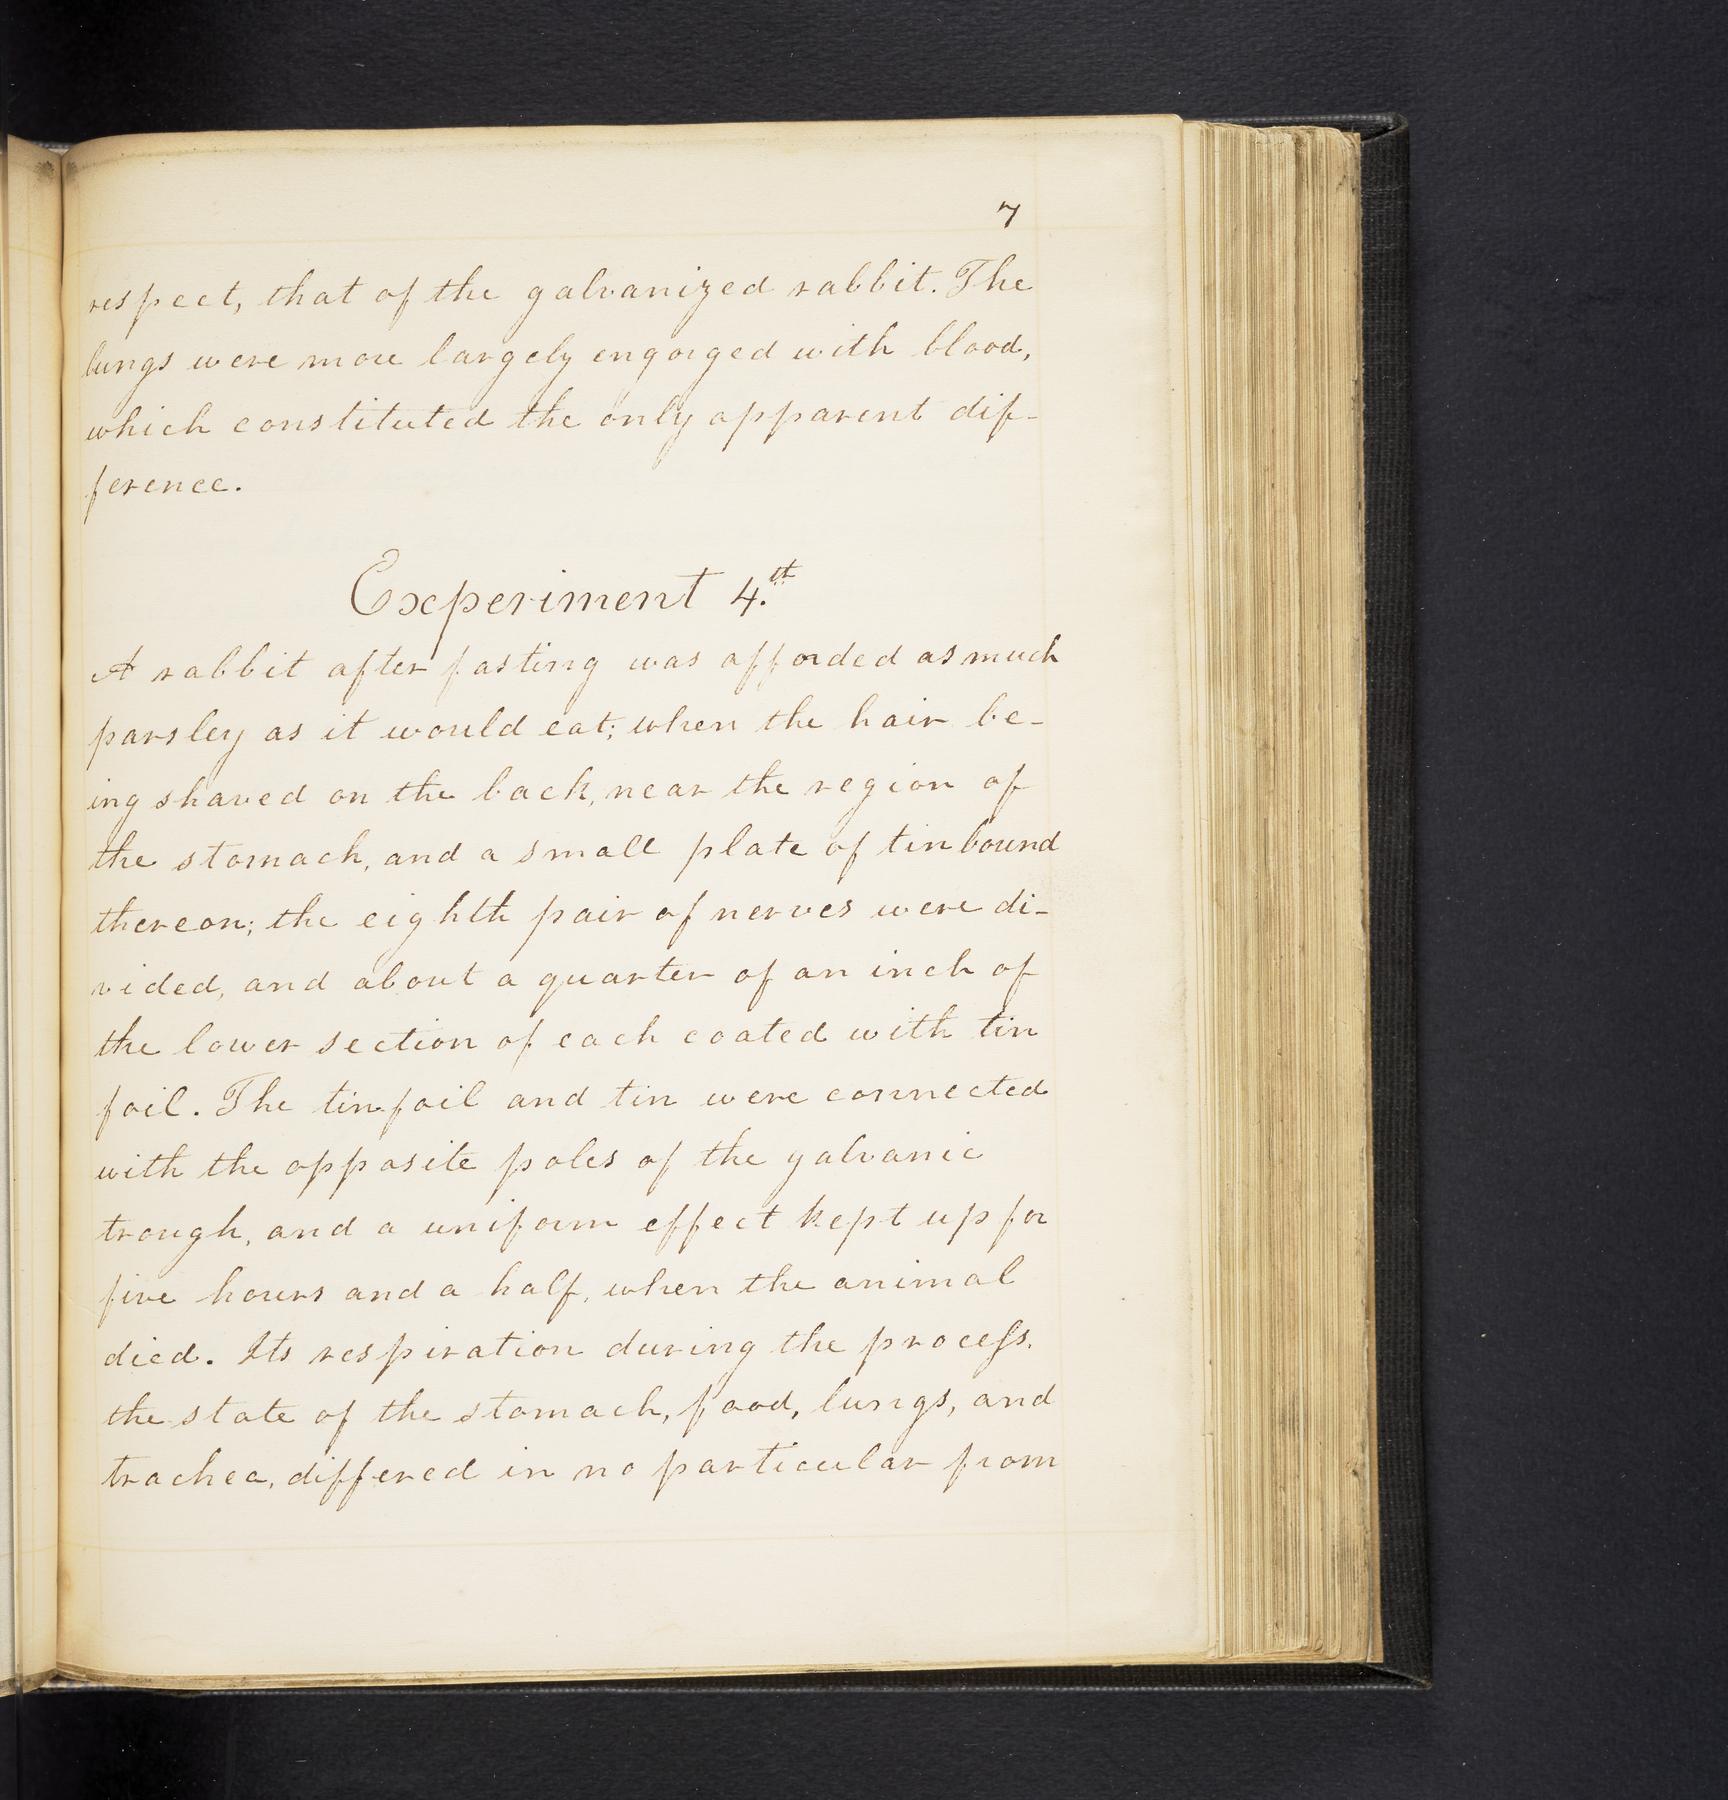 7
respect, that of the galvanized rabbit. The
lungs were more largely engorged with blood,
which constituted the only apparent dif-
ference.
Experiment 4.th
A rabbit after fasting was afforded as much
parsley as it would eat; when the hair be-
ing shaved on the back, near the region of
the stomach, and a small plate of tin bound
thereon; the eighth pair of nerves were di-
vided, and about a quarter of an inch of
the lower section of each coated with tin
foil. The tin foil and tin were connected
with the opposite poles of the galvanic
trough, and a uniform effect kept up for
five hours and a half, when the animal
died. Its respiration during the proceſs,
the state of the stomach, food, lungs, and
trachea, differed in no particular from